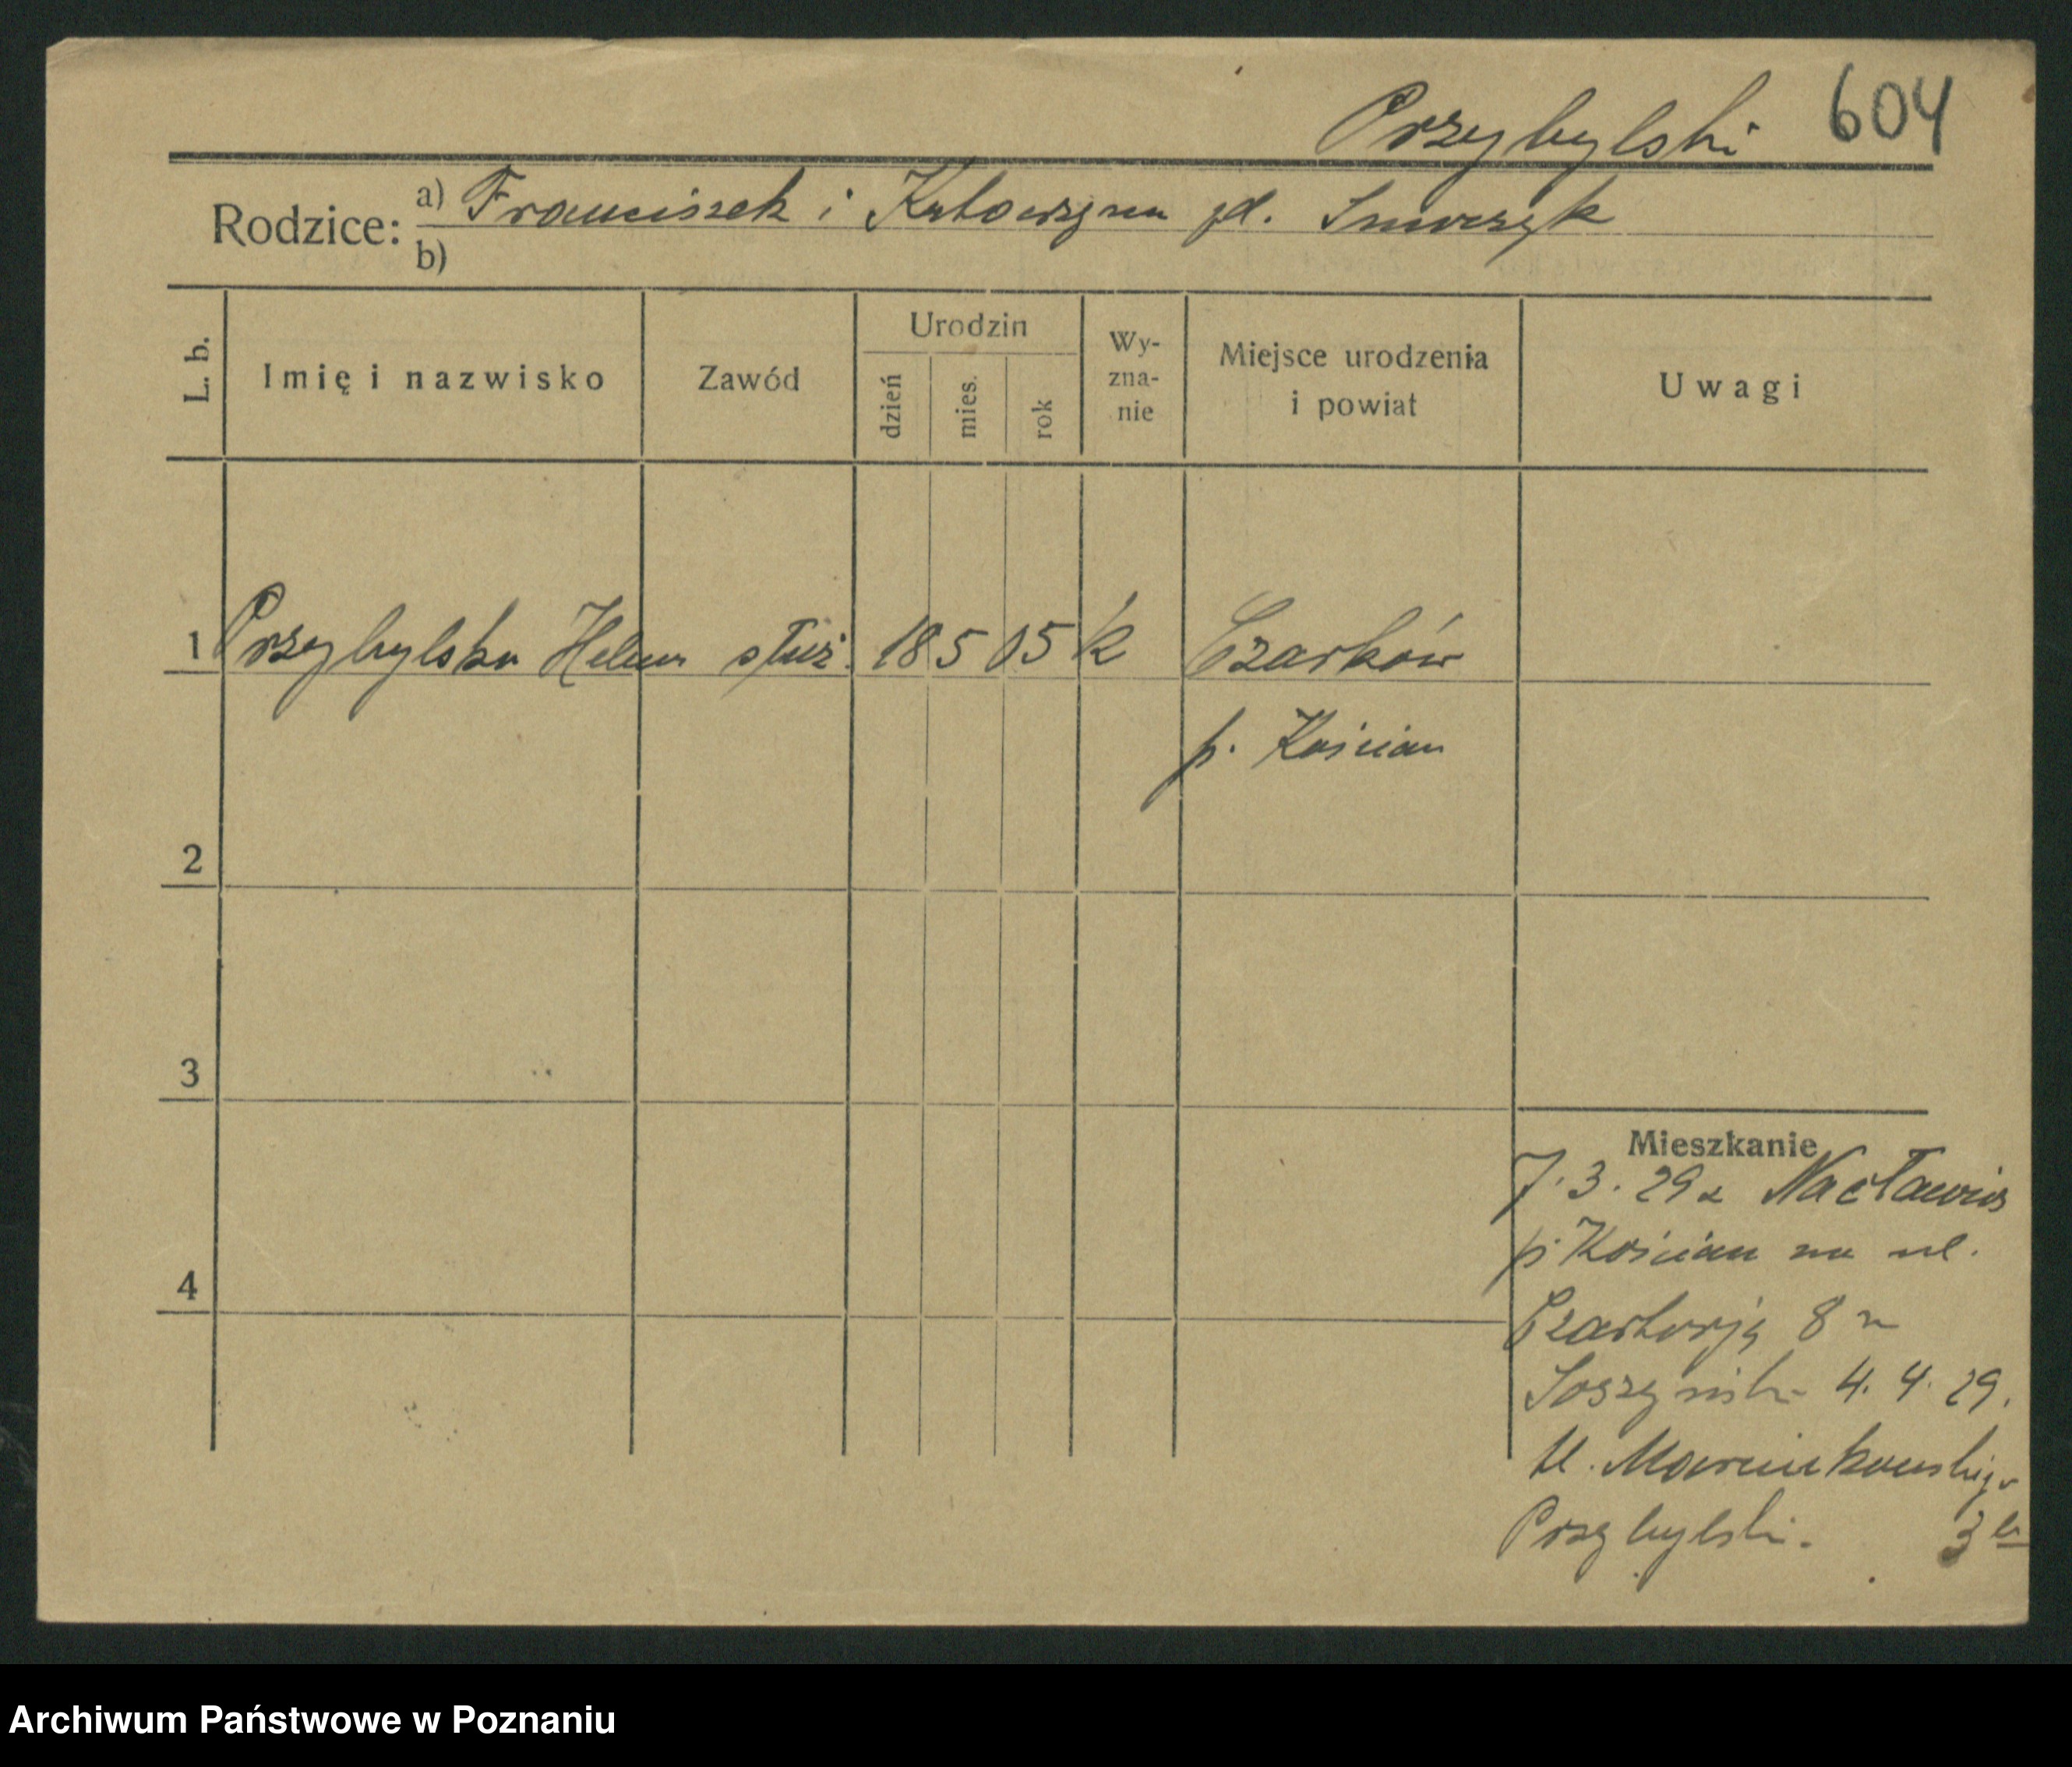 Przybylski 604
Rodzice: a) Franciszek i Katarzyna
b)
L. b. Imię i nazwisko Zawód Urodzin dzień mies. rok Wy-zna-nie Miejsce urodzenia i powiat Uwagi
1 Przybylska Helena służ. 18 5 05 k Czarków
p. Kościan
2
3
Mieszkanie
7.3.29 z Nacławia
p. Kościan na ul.
4
Czartorją 8 u
4.4.29.
Ul. Marcinkowskiego
Przybylski. 3
Archiwum Państwowe w Poznaniu